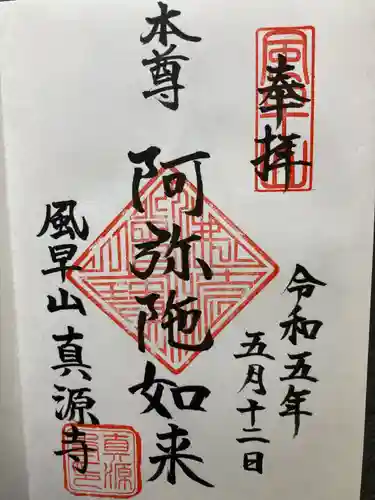 奉拝
令和五年
五月十二日
本尊
阿弥陀如来
風早山真源寺